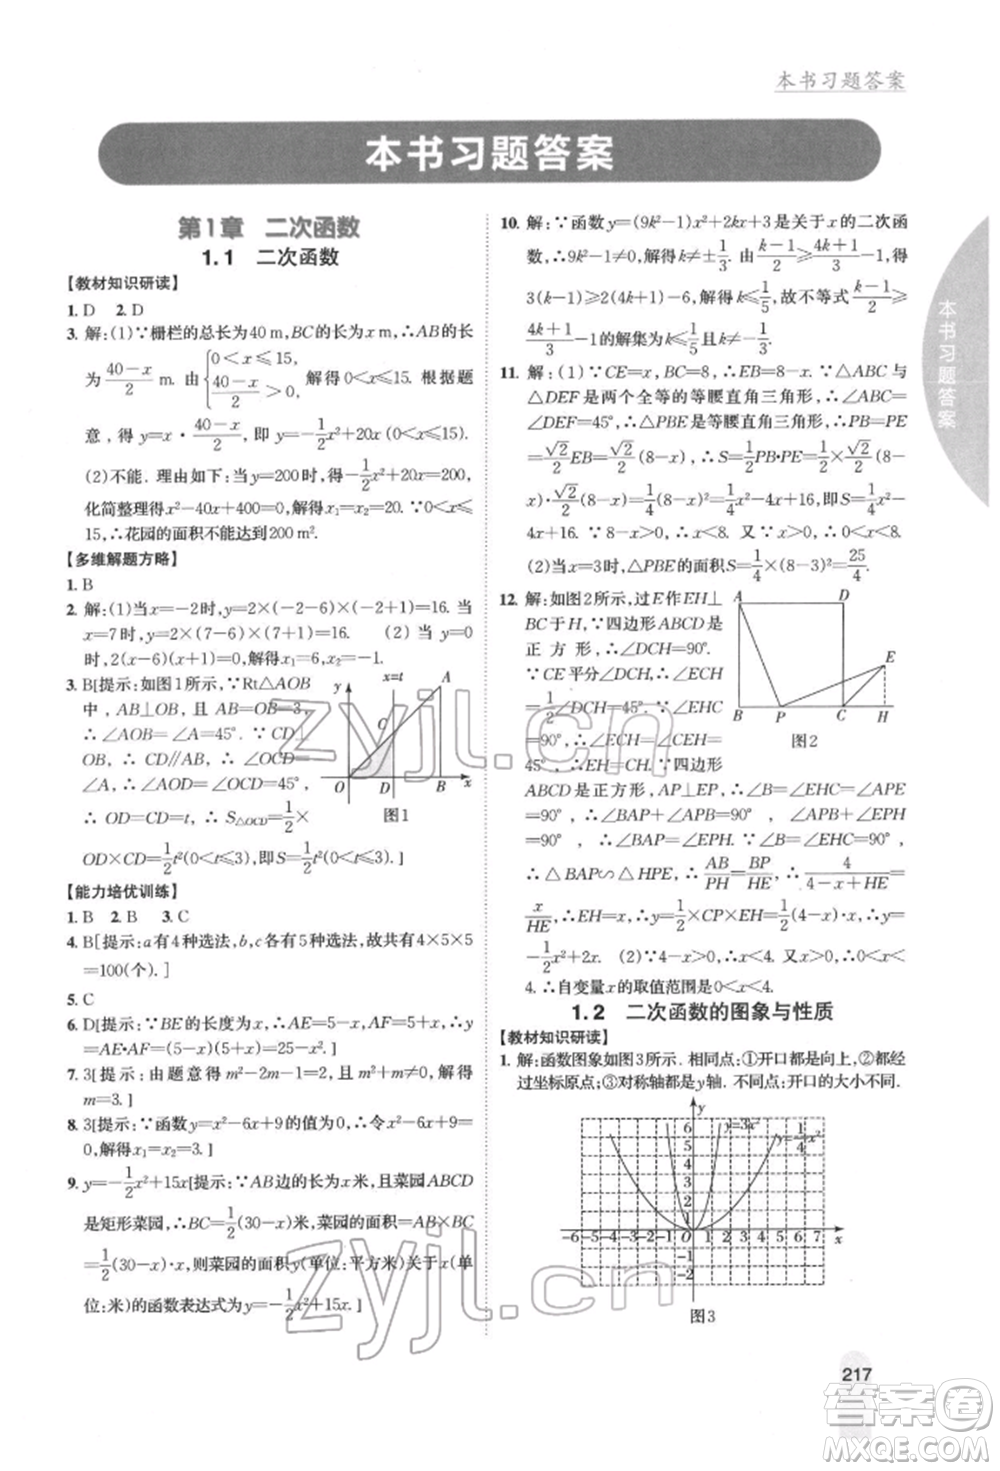 本书习题答案
本书习题答案
第1章 二次函数
1.1 二次函数
【教材知识研读】
1. D 2. D
3. 解:(1)∵栅栏的总长为40 m,BC的长为x m,∴AB的长
为(40-x)/2 m. 由{0<x≤15, (40-x)/2>0, 解得0<x≤15. 根据题
意,得y=x·(40-x)/2,即y=-1/2x²+20x(0<x≤15).
(2)不能. 理由如下:当y=200时,-1/2x²+20x=200,
化简整理得x²-40x+400=0,解得x₁=x₂=20. ∵0<x≤
15,∴花园的面积不能达到200 m².
【多维解题方略】
1. B
2. 解:(1)当x=-2时,y=2×(-2-6)×(-2+1)=16. 当
x=7时,y=2×(7-6)×(7+1)=16. (2)当y=0
时,2(x-6)(x+1)=0,解得x₁=6,x₂=-1.
3. B[提示:如图1所示,∵Rt△AOB
中,AB⊥OB,且AB=OB=3,
∴∠AOB=∠A=45°. ∵CD⊥
OB,∴CD∥AB,∴∠OCD=
∠A,∴∠AOD=∠OCD=45°,
∴OD=CD=t,∴S△OCD=1/2×
OD×CD=1/2t²(0<t≤3),即S=1/2t²(0<t≤3). ]
y x=t A C O D B x
图1
【能力培优训练】
1. B 2. B 3. C
4. B[提示:a有4种选法,b,c各有5种选法,故共有4×5×5
=100(个). ]
5. C
6. D[提示:∵BE的长度为x,∴AE=x+5-x=5,∴y=
AE·AB=5(5-x)=25-5x. ]
7. 3[提示:由题意得m²-2m-1=2,且m+1≠0,解得
m=3. ]
8. 3[提示:∵函数y=x²-6x+9的值为0,∴令x²-6x+9=
0,解得x₁=x₂=3. ]
9. y=-1/2x²+15x[提示:∵AB边长为x米,且菜园ABCD
是矩形菜园,∴BC=1/2(30-x)米. ∵菜园的面积=AB×BC
=1/2(30-x)·x,则菜园的面积y(单位:平方米)与x(单
位:米)的函数表达式为y=-1/2x²+15x. ]
10. 解:∵函数y=(9k²-1)x²+2kx+3是关于x的二次函
数,∴9k²-1≠0,解得k≠±1/3. 由(k-1)/2≥(4k+1)/3-1得
3(k-1)≥2(4k+1)-6,解得k≤1/5,故不等式(k-1)/2≥
(4k+1)/3-1的解集为k≤1/5且k≠-1/3.
11. 解:(1)∵CE=x,BC=8,∴EB=8-x. ∵△ABC与
△DEF是两个全等的等腰直角三角形,∴∠ABC=
∠DEF=45°,∴△PBE也是等腰直角三角形,∴PB=PE=
√2/2EB=√2/2(8-x),∴S=1/2PB·PE=1/2×√2/2(8-
x)·√2/2(8-x)=1/4(8-x)²=1/4x²-4x+16,即S=1/4x²-
4x+16. ∵8-x>0,∴x<8. 又∵x>0,∴0<x<8.
(2)当x=3时,△PBE的面积S=1/4×(8-3)²=25/4.
12. 解:如图2所示,过E作EH⊥
BC于H,∵四边形ABCD是
正方形,∴∠DCH=90°.
∵CE平分∠DCH,∴∠ECH=
1/2∠DCH=45°. ∵∠EHC
=90°,∴∠ECH=∠CEH=
45°,∴EH=CH. ∵四边形
ABCD是正方形,AP⊥EP,∴∠B=∠EHC=90°,
∴∠BAP+∠APB=90°,∠APB+∠EPH
=90°,∴∠BAP=∠EPH. ∵∠B=∠EHC=90°,
∴△BAP∽△HPE,∴AB/PH=BP/HE,∴4/(4-x+HE)=
x/HE,∴EH=x,∴y=1/2×CP×EH=1/2(4-x)·x=
-1/2x²+2x. (2)∵4-x>0,∴x<4. ∵x>0,∴0<x<
4. ∴自变量x的取值范围是0<x<4.
A D E B P C H
图2
1.2 二次函数的图象与性质
【教材知识研读】
1. 解:函数图象如图3所示. 相同点:①开口都是向上,②都经
过坐标原点;③对称轴都是y轴. 不同点:开口的大小不同.
y y=3x² y=1/4x²
6 5 4 3 2 1
-6 -5 -4 -3 -2 -1 O 1 2 3 4 5 6 7 x
-1 -2
图3
本书习题答案
217
zyjl.cn
zyjl.cn
答案圈
MXQE.COM